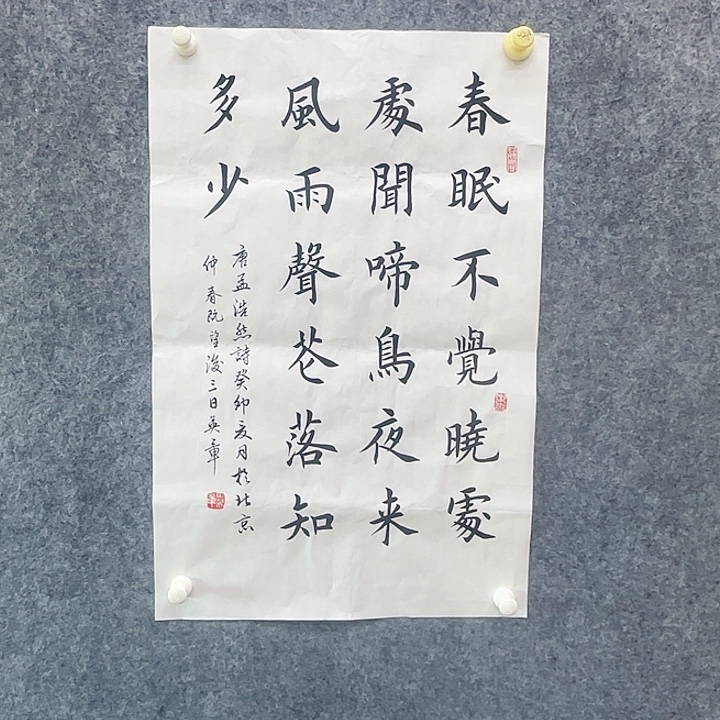 春眠不覺曉處
處聞啼鳥夜来
風雨聲花落知
多少
唐孟浩然詩癸卯夏月於北京
仲春既望後三日英章